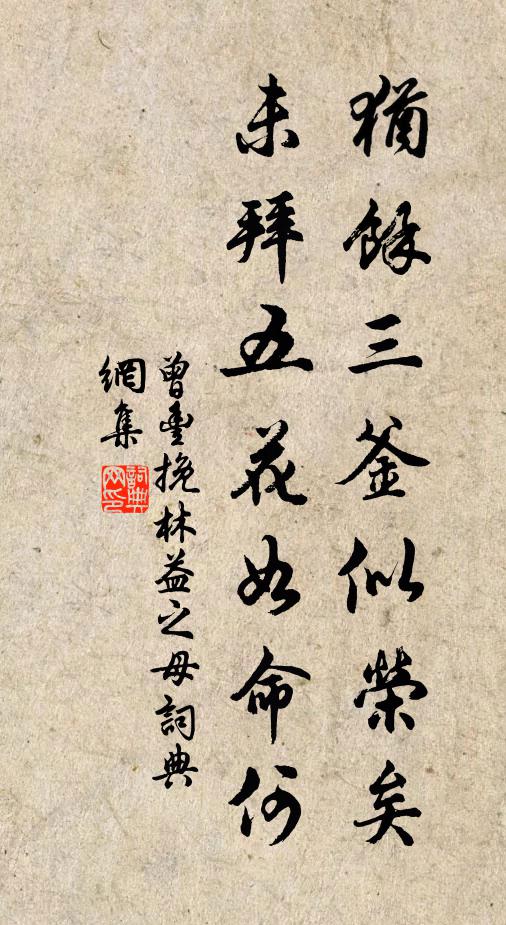 猶餘三釜似榮矣
未拜五花如命何
曾豐挽林益之母詞典
網集
詞典網印